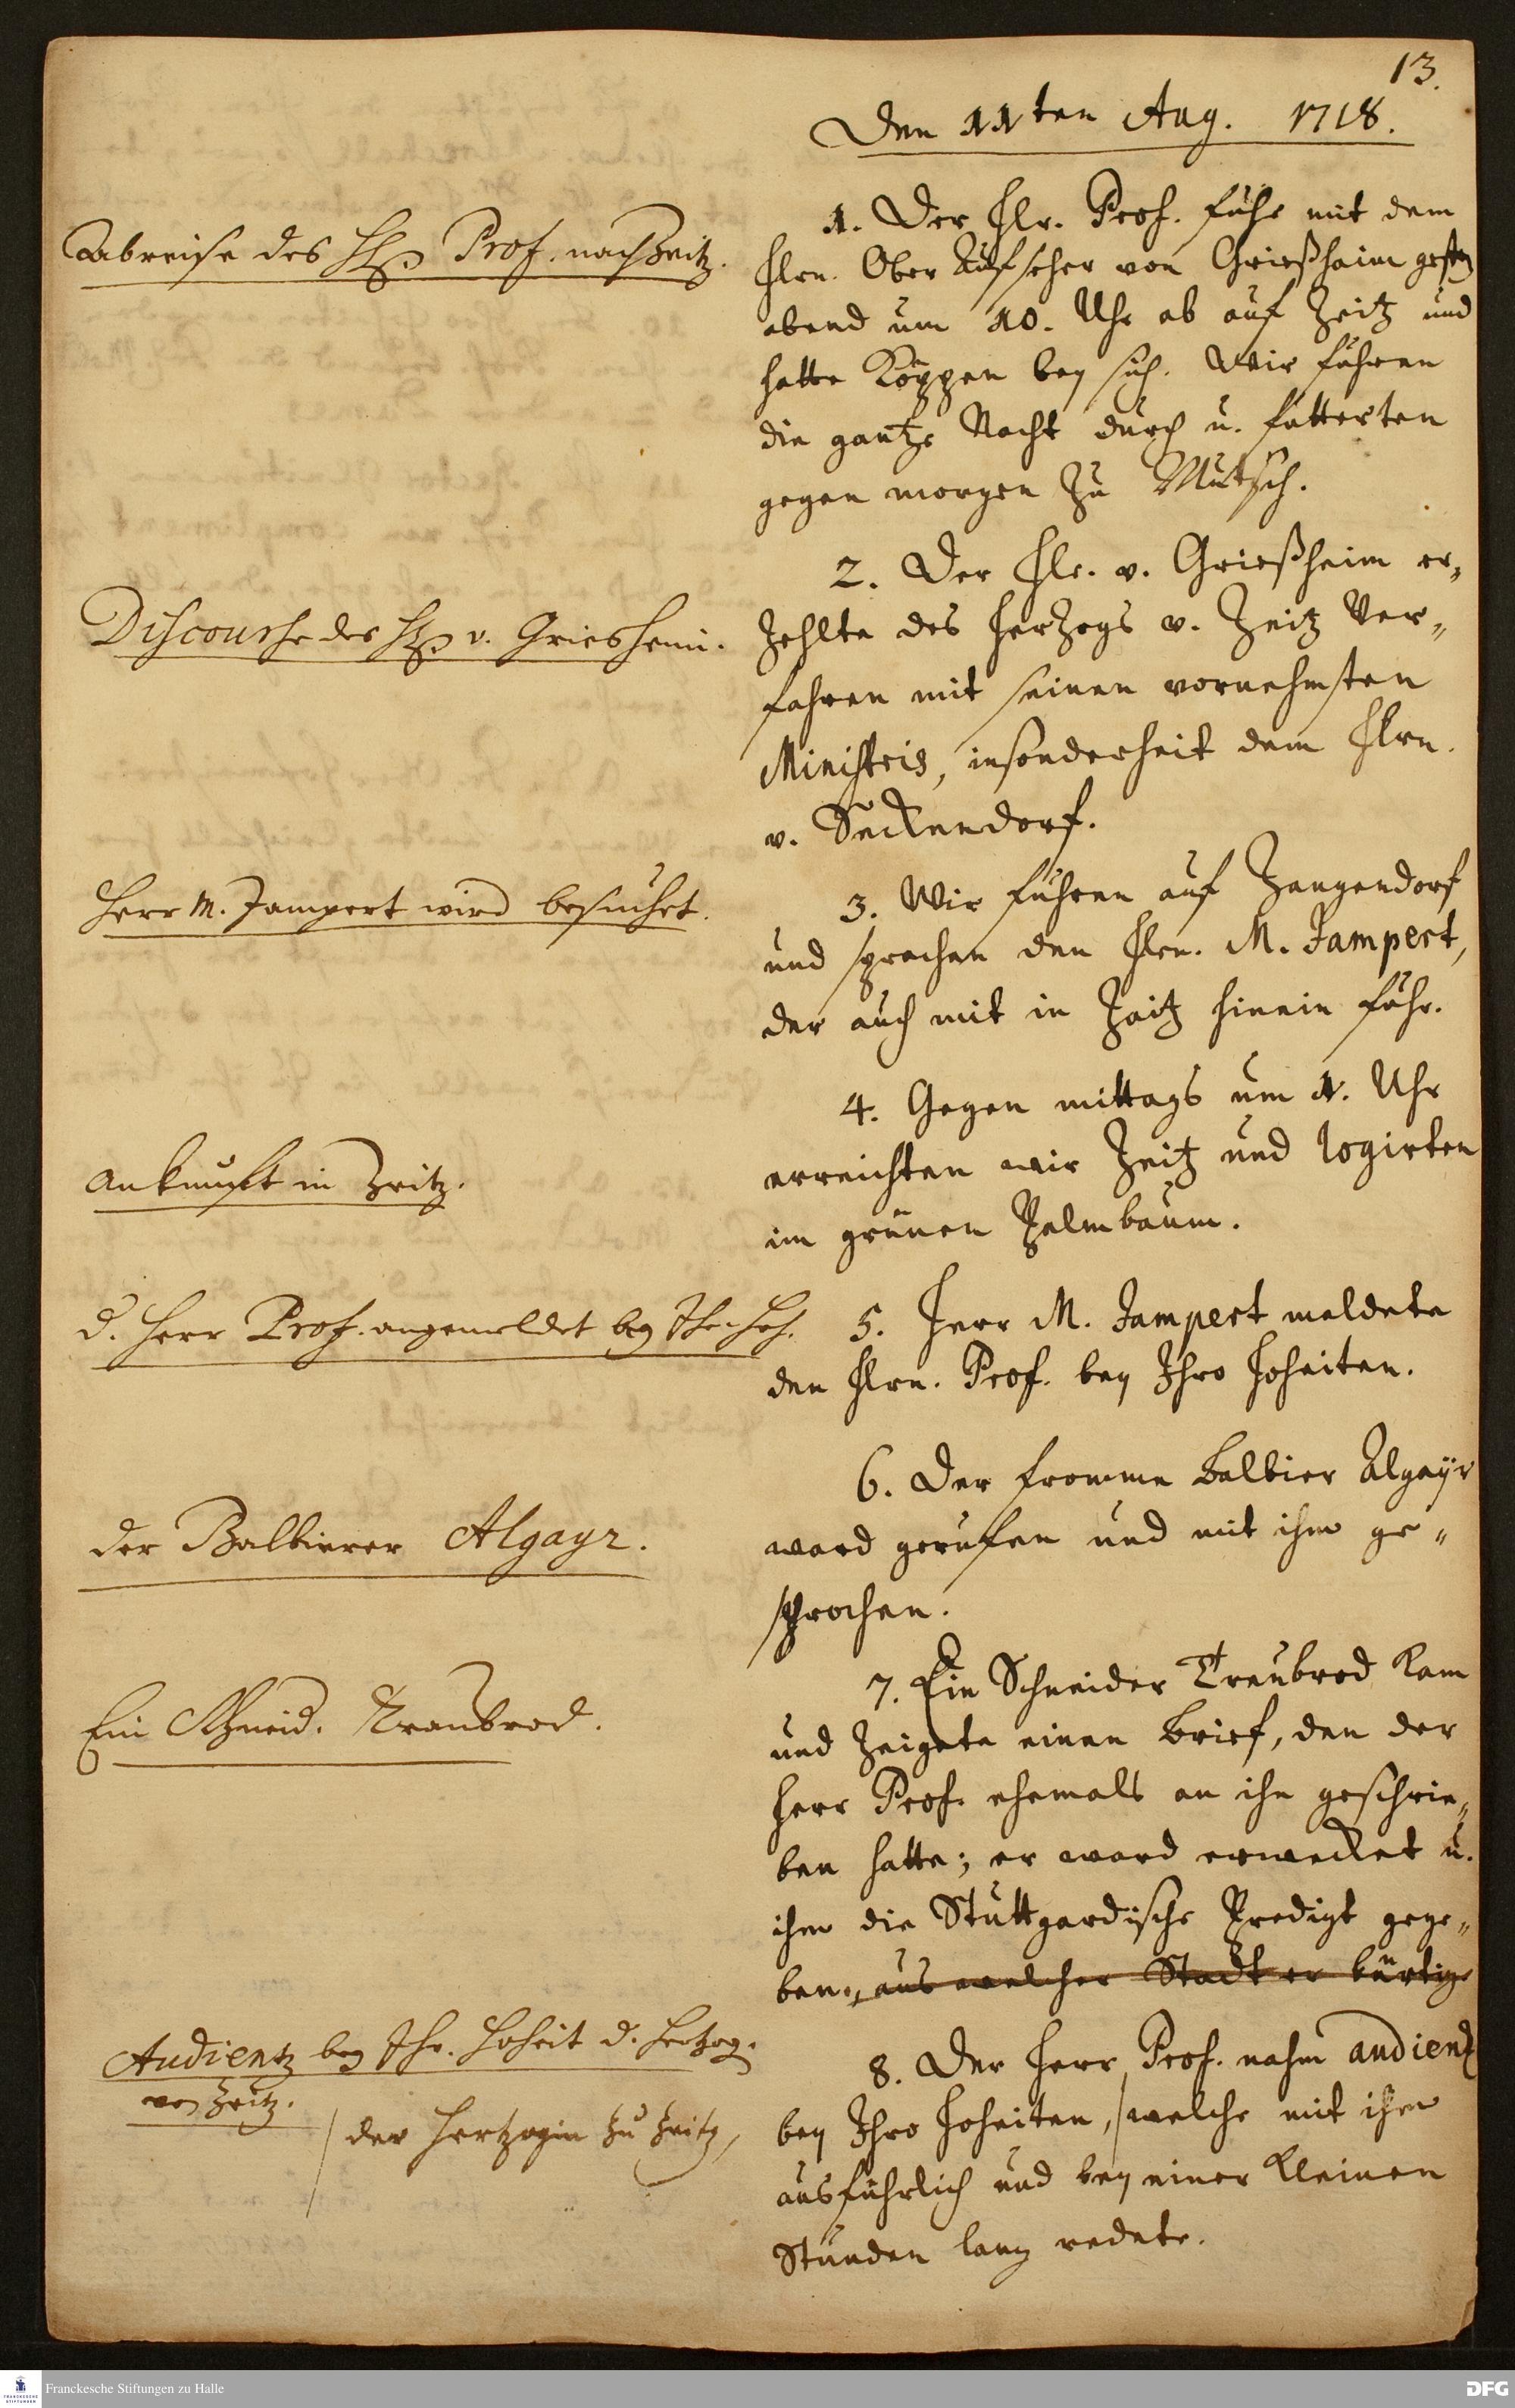 13.
Den 11ten Aug. 1718.
Abreise des H. Prof. nach Zeitz.
1. Der Hr. Prof. fuhr mit dem
Hrn. Ober Aufseher von Grießheim gestern
abend um 10. Uhr ab auf Zeitz und
hatte Köppen bey sich. Wir fuhren
die gantze Nacht durch u. futterten
gegen morgen zu Mutsch.
Discourse des H. v. Griesheim.
2. Der Hr. v. Grießheim er-
zehlte des Herzogs v. Zeitz Ver-
fahren mit seinen vornehmsten
Ministris, insonderheit dem Hrn.
v. Seckendorf.
Herr M. Jampert wird besuchet.
3. Wir fuhren auf Zangendorf
und sprachen den Hrn. M. Jampert,
der auch mit in Zeitz hinein fuhr.
Ankunft in Zeitz.
4. Gegen mittags um 1. Uhr
erreichten wir Zeitz und logirten
im grünen Palmbaum.
d. Herr Prof. angemeldet bey Ihr. Hoh.
5. Herr M. Jampert meldete
den Hrn. Prof. bey Ihro Hoheiten.
der Balbierer Algayr.
6. Der fromme Balbier Algayr
ward gerufen und mit ihm ge-
sprochen.
Ein Schneid. Traubrod.
7. Ein Schneider Treubrod kam
und zeigete einen Brief, den der
Herr Prof. ehemals an ihn geschrie-
ben hatte; er ward erwecket u.
ihm die Stuttgardische Predigt gege-
ben, aus welcher Stadt er bürtig
Audientz bey Ihr. Hoheit d. Hertzog.
von Zeitz.
8. Der Herr Prof. nahm audientz
bey Ihro Hoheiten, /welche mit ihm
/ der Hertzogin zu Zeitz,
ausführlich und bey einer kleinen
Stunden lang redete.
Franckesche Stiftungen zu Halle
DFG